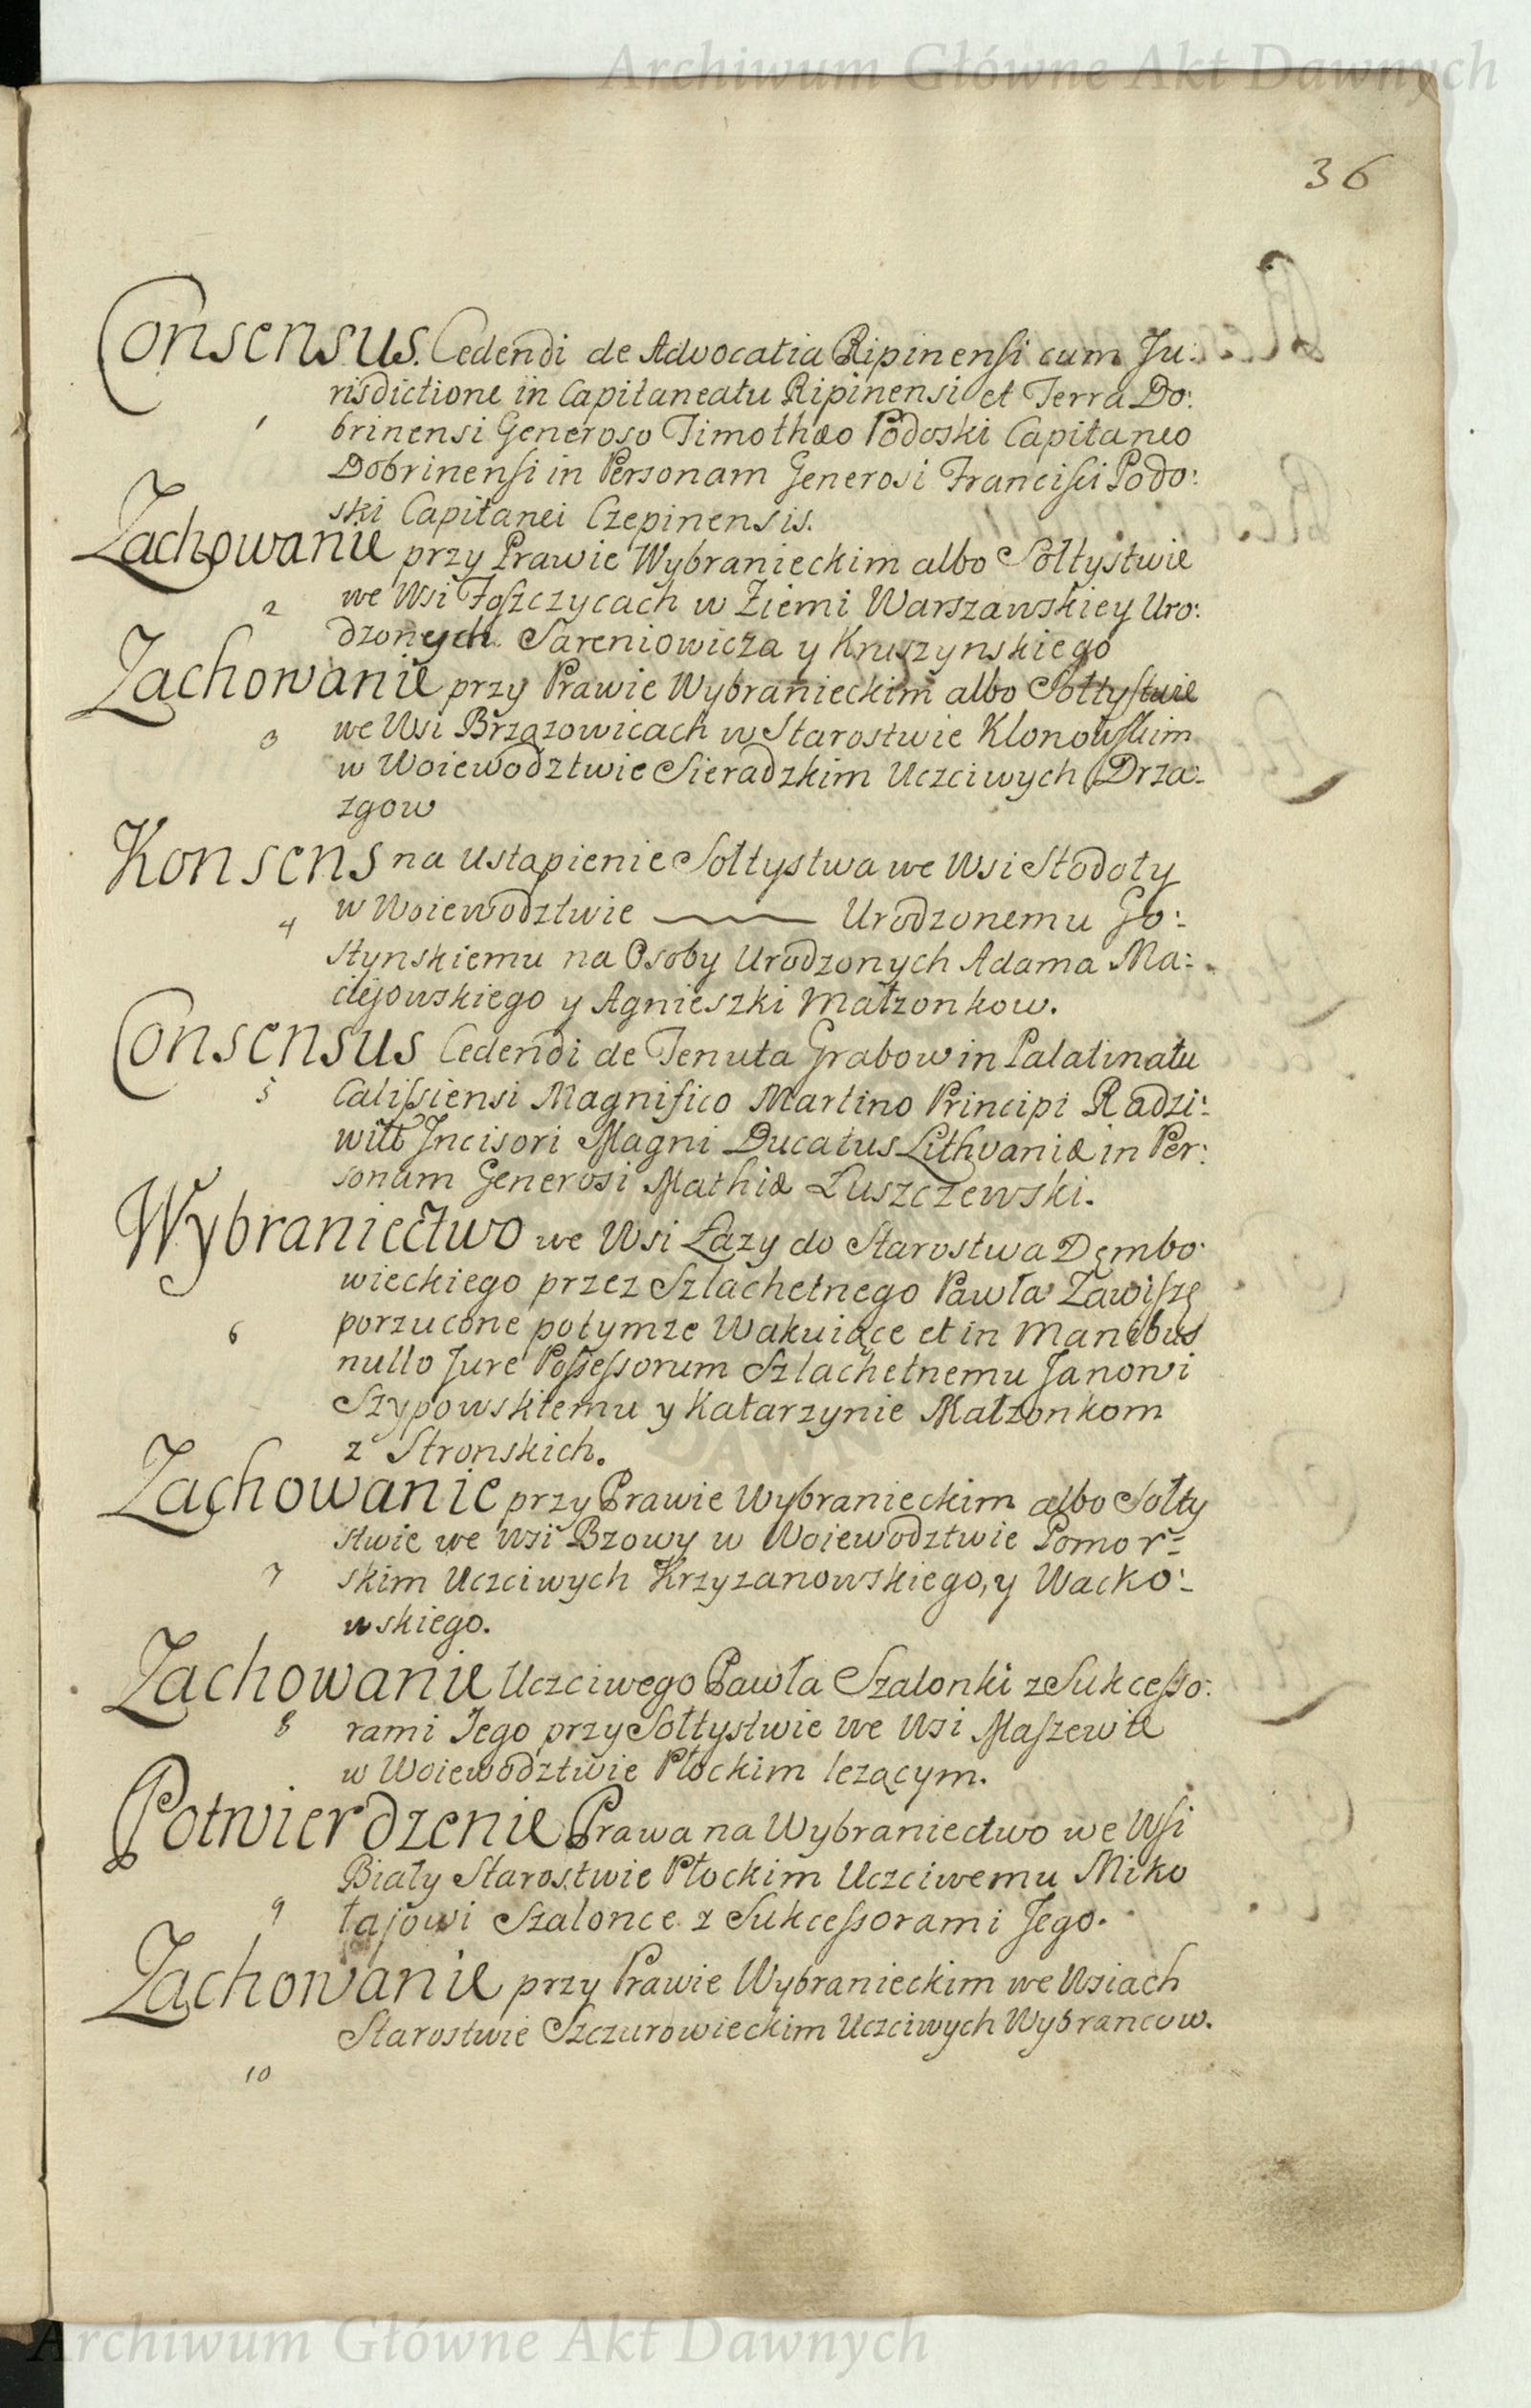 Archiwum Główne Akt Dawnych
36
Consensus. Cedendi de Advocatia Ripinensi cum Ju:
risdictione in Capitaneatu Ripinensi et Terra Do:
1
brinensi Generoso Timothæo Podoski Capitaneo
Dobrinensi in Personam Generosi Francisci Podo:
ski Capitanei Czepinensis.
Zachowanie przy Prawie Wybranieckim albo Sołtystwie
2 we Wsi Foszczycach w Ziemi Warszawskiey Uro:
dzonych Sareniowicza y Kruszynskiego
Zachowanie przy Prawie Wybranieckim albo Sołtystwie
3 we Wsi Brzozowicach w Starostwie Klonowskim
w Woiewodztwie Sieradzkim Uczciwych Drza:
zgow
Konsens na Ustąpienie Sołtystwa we Wsi Stodoły
4 w Woiewodztwie ——— Urodzonemu Go:
stynskiemu na Osoby Urodzonych Adama Ma:
ciejowskiego y Agnieszki Małzonkow.
Consensus Cedendi de Tenuta Grabow in Palatinatu
5 Calissiensi Magnifico Martino Principi Radzi:
wiłł Incisori Magni Ducatus Lithvaniæ in Per:
sonam Generosi Mathiæ Łuszczewski.
Wybraniectwo we Wsi Łazy do Starostwa Dębo:
wieckiego przez Szlachetnego Pawła Zawiszę
6 porzucone potymze Wakuiące et in Manibus
nullo Jure Possessorum Szlachetnemu Janowi
Szypowskiemu y Katarzynie Małzonkom
z Stronskich.
Zachowanie przy Prawie Wybranieckim albo Sołty
stwie we Wsi Bzowy w Woiewodztwie Pomor:
7 skim Uczciwych Krzyzanowskiego, y Wacko:
wskiego.
Zachowanie Uczciwego Pawła Szalonki z Sukcesso:
8 rami Jego przy Sołtystwie we Wsi Maszewie
w Woiewodztwie Płockim lezącym.
Potwierdzenie Prawa na Wybraniectwo we Wsi
Biały Starostwie Płockim Uczciwemu Miko
9 łajowi Szalonce z Sukcessorami Jego.
Zachowanie przy Prawie Wybranieckim we Wsiach
Starostwie Szczurowieckim Uczciwych Wybrancow.
10
Archiwum Główne Akt Dawnych